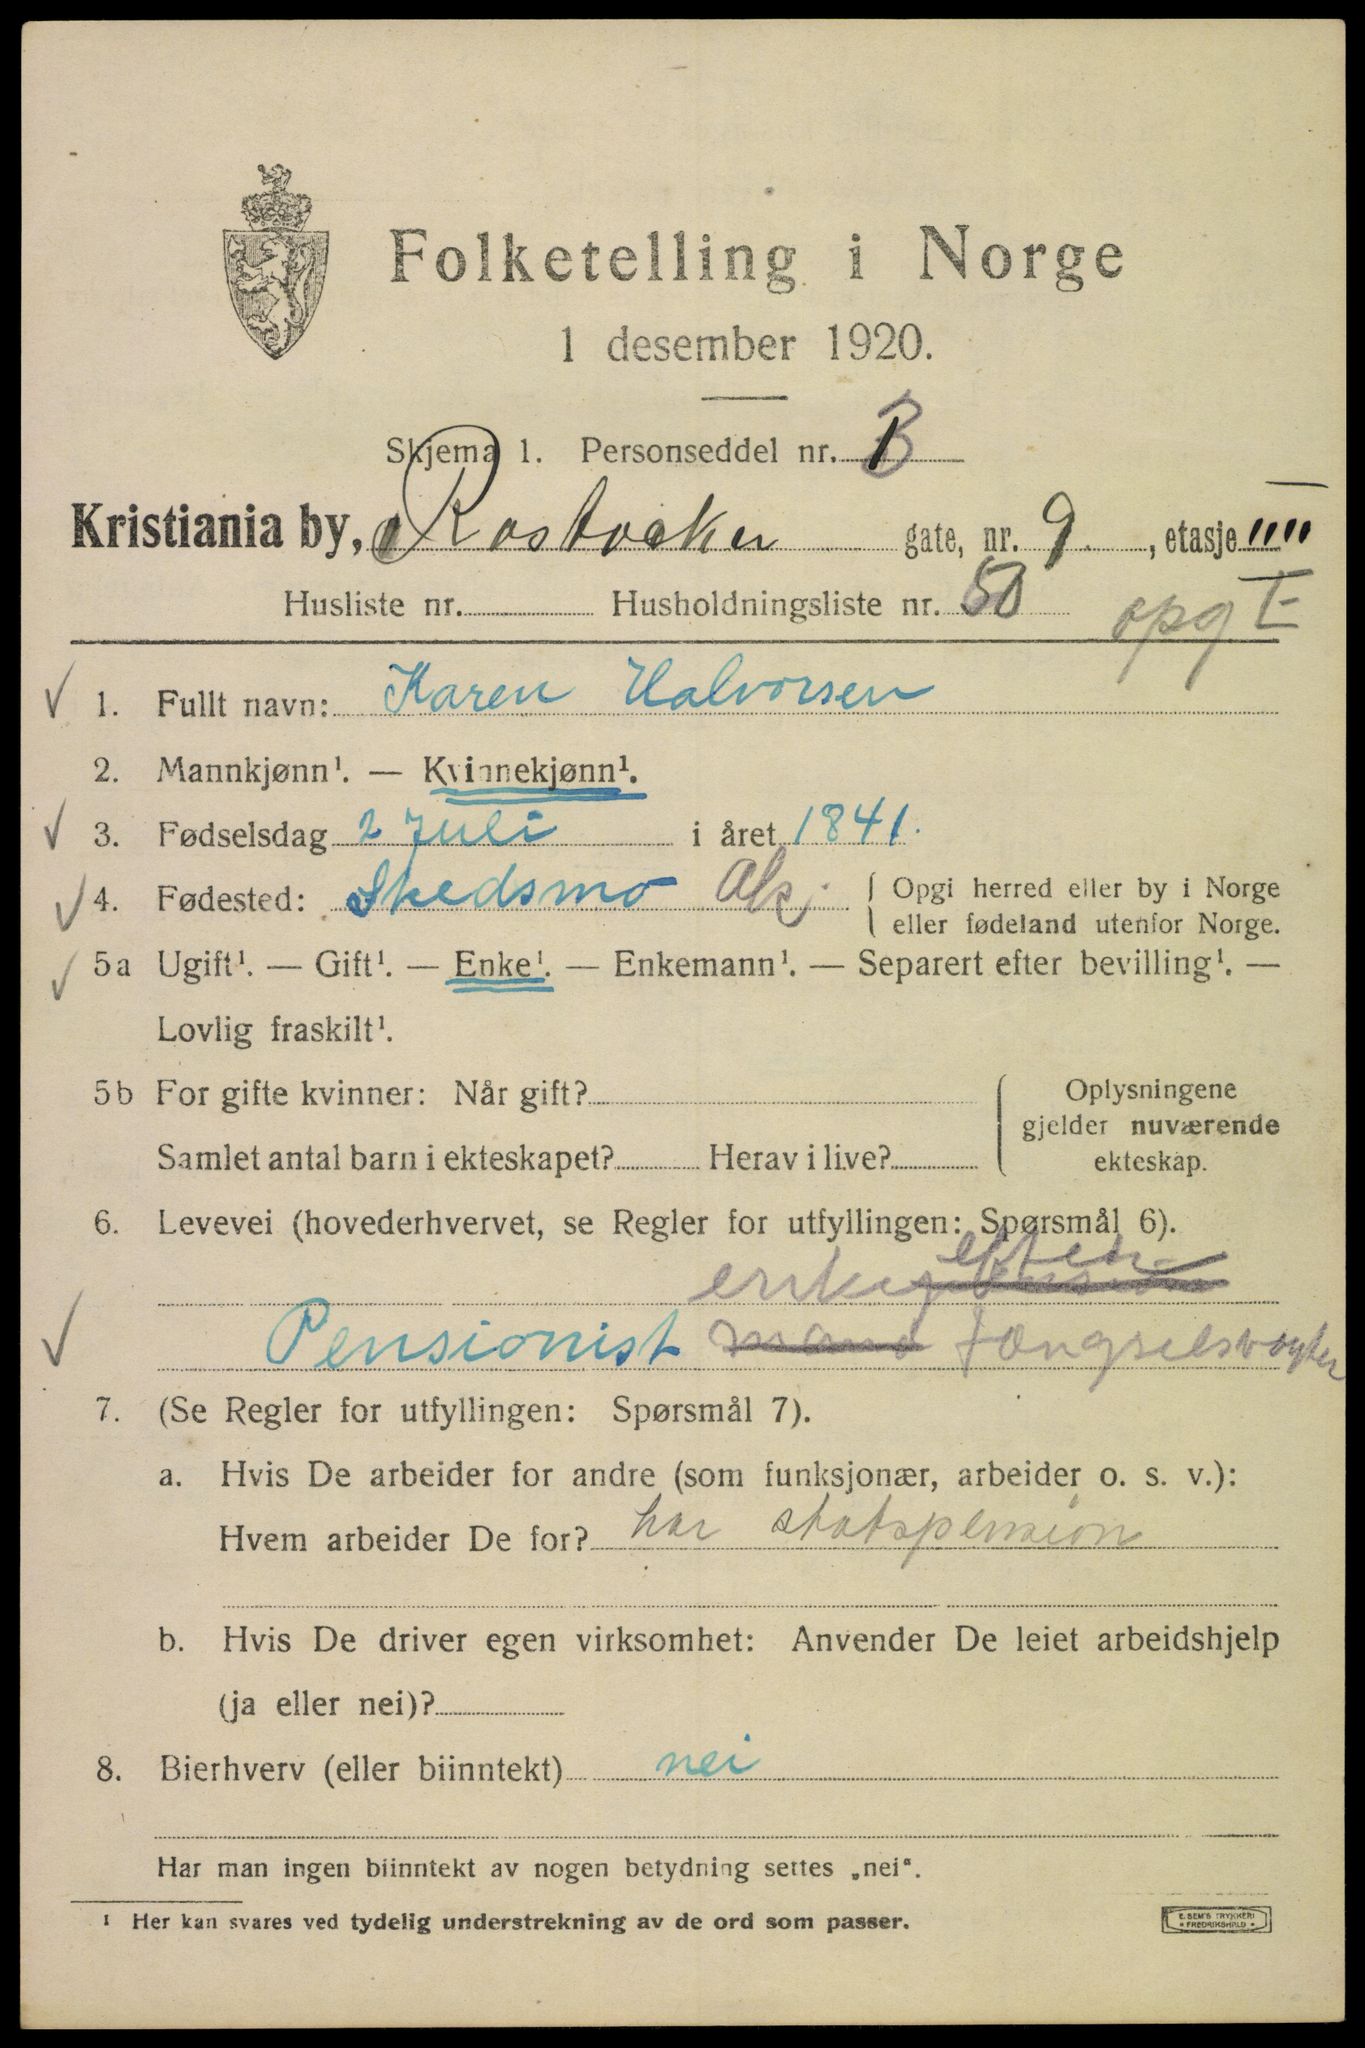 Folketelling i Norge
1 desember 1920.
Skjema 1. Personseddel nr. 1 B
Kristiania by, Rostocker gate, nr. 9 , etasje
Husliste nr. Husholdningsliste nr. 50 opg I
1. Fullt navn: Karen Halvorsen
2. Mannkjønn¹. — Kvinnekjønn¹.
3. Fødselsdag 2 Juli i året 1841.
4. Fødested: Skedsmo Ak. Opgi herred eller by i Norge
eller fødeland utenfor Norge.
5a Ugift¹. — Gift¹. — Enke¹. — Enkemann¹. — Separert efter bevilling¹. —
Lovlig fraskilt¹.
5b For gifte kvinner: Når gift? Oplysningene
gjelder nuværende
Samlet antal barn i ekteskapet? Herav i live? ekteskap.
6. Levevei (hovederhvervet, se Regler for utfyllingen: Spørsmål 6).
enke efter
Pensionist fængselsvogter
7. (Se Regler for utfyllingen: Spørsmål 7).
a. Hvis De arbeider for andre (som funksjonær, arbeider o. s. v.):
Hvem arbeider De for? har statspension
b. Hvis De driver egen virksomhet: Anvender De leiet arbeidshjelp
(ja eller nei)?
8. Bierhverv (eller biinntekt) nei
Har man ingen biinntekt av nogen betydning settes „nei“.
¹ Her kan svares ved tydelig understrekning av de ord som passer.
E. SEM'S TRYKKERI
* FREDRIKSHALD *